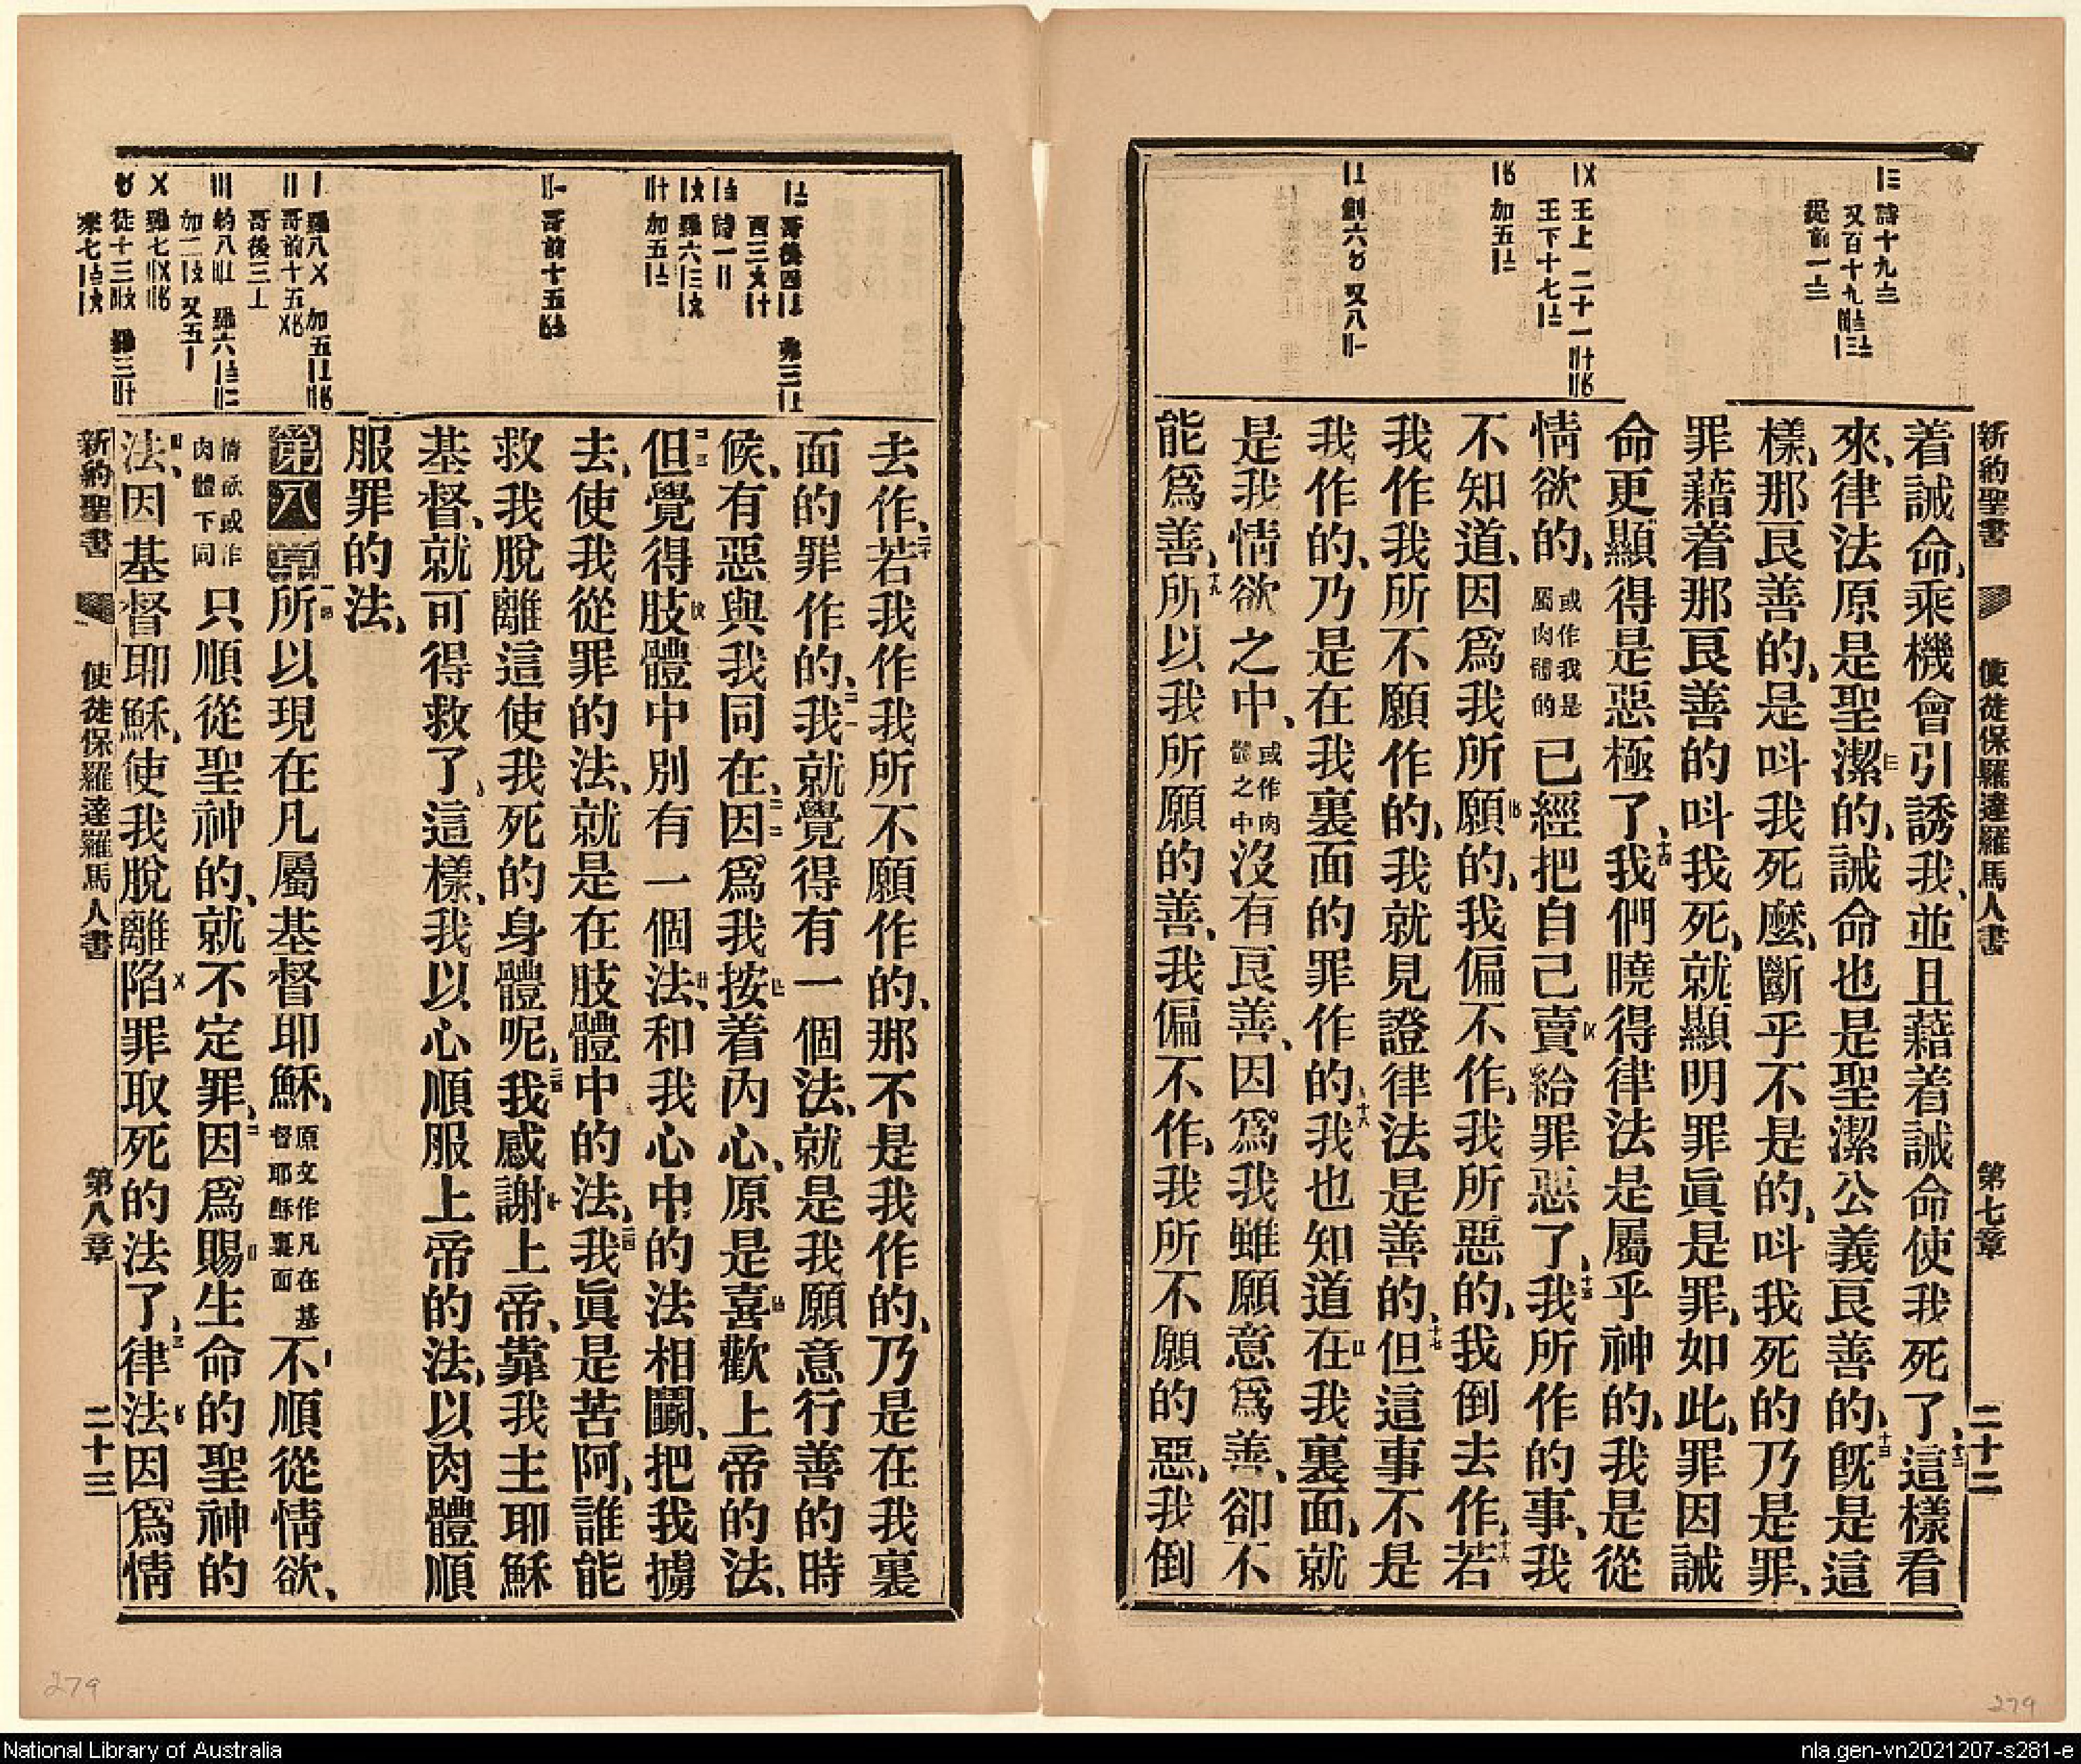 新約聖書 使徒保羅達羅馬人書 第七章 二十二
着誡命、乘機會引誘我、並且藉着誡命使我死了、十二這樣看
來、律法原是聖潔的、誡命也是聖潔公義良善的、十三旣是這
樣、那良善的、是呌我死麼、斷乎不是的、呌我死的乃是罪、
罪藉着那良善的呌我死、就顯明罪眞是罪、如此、罪因誡
命更顯得是惡極了、十四我們曉得律法是屬乎神的、我是從
情欲的、或作我是屬肉體的已經把自己賣給罪惡了、十五我所作的事、我
不知道、因爲我所願的、我偏不作、我所惡的、我倒去作、十六若
我作我所不願作的、我就見證律法是善的、十七但這事不是
我作的、乃是在我裏面的罪作的、十八我也知道在我裏面、就
是我情欲之中、或作肉體之中沒有良善、因爲我雖願意爲善、卻不
能爲善、十九所以我所願的善、我偏不作、我所不願的惡、我倒
詩十九〨
王上 二十一
王下十七
加五
創六 又八
去作、二十若我作我所不願作的、那不是我作的、乃是在我裏
面的罪作的、二一我就覺得有一個法、就是我願意行善的時
候、有惡與我同在、二二因爲我按着內心、原是喜歡上帝的法、
二三但覺得肢體中別有一個法、和我心中的法相鬭、把我擄
去、使我從罪的法、就是在肢體中的法、二四我眞是苦阿、誰能
救我脫離這使我死的身體呢、二五我感謝上帝、靠我主耶穌
基督、就可得救了、這樣、我以心順服上帝的法、以肉體順
服罪的法、
第八章一節所以現在凡屬基督耶穌、原文作凡在基督耶穌裏面不順從情欲、
情欲或作肉體下同只順從聖神的、就不定罪、二因爲賜生命的聖神的
法、因基督耶穌、使我脫離陷罪取死的法了、三律法因爲情
新約聖書 使徒保羅達羅馬人書 第八章 二十三
279
279
National Library of Australia
nla.gen-vn2021207-s281-e